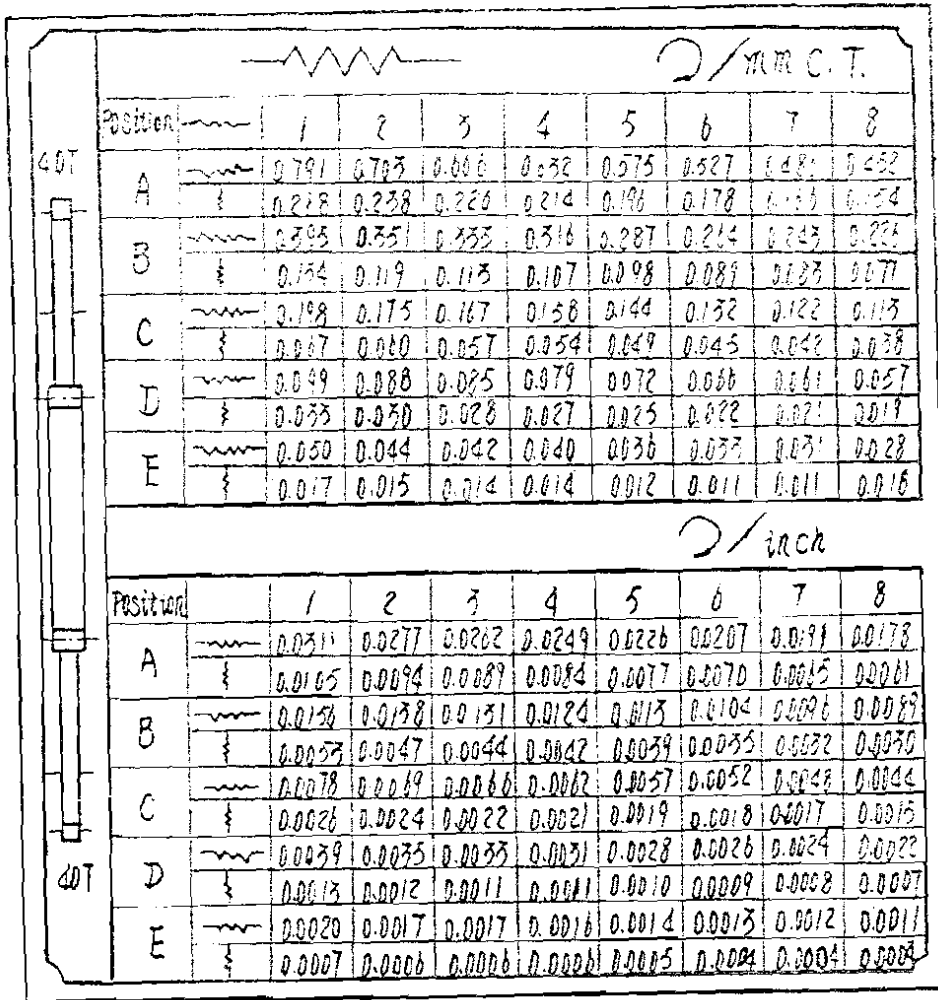 /mm C.T.
Position 1 2 3 4 5 6 7 8
40T
A 0.791 0.703 0.632 0.575 0.527 0.452
0.268 0.238 0.226 0.214 0.196 0.178 0.154
B 0.395 0.351 0.333 0.316 0.287 0.264 0.243 0.226
0.134 0.119 0.113 0.107 0.098 0.089 0.083 0.077
C 0.198 0.175 0.167 0.158 0.144 0.132 0.122 0.113
0.067 0.060 0.057 0.054 0.049 0.045 0.042 0.038
D 0.099 0.088 0.085 0.079 0.072 0.066 0.061 0.057
0.033 0.030 0.028 0.027 0.025 0.022 0.021 0.019
E 0.050 0.044 0.042 0.040 0.036 0.033 0.031 0.028
0.017 0.015 0.014 0.014 0.012 0.011 0.011 0.010
/inch
Position 1 2 3 4 5 6 7 8
A 0.0311 0.0277 0.0262 0.0249 0.0226 0.0207 0.0191 0.0178
0.0105 0.0094 0.0089 0.0084 0.0077 0.0070 0.0065 0.0061
B 0.0156 0.0138 0.0131 0.0124 0.0113 0.0104 0.0096 0.0089
0.0053 0.0047 0.0044 0.0042 0.0039 0.0035 0.0032 0.0030
C 0.0078 0.0069 0.0066 0.0062 0.0057 0.0052 0.0048 0.0044
0.0026 0.0024 0.0022 0.0021 0.0019 0.0018 0.0017 0.0015
D 0.0039 0.0035 0.0033 0.0031 0.0028 0.0026 0.0024 0.0022
40T
0.0013 0.0012 0.0011 0.0011 0.0010 0.0009 0.0008 0.0007
E 0.0020 0.0017 0.0017 0.0016 0.0014 0.0013 0.0012 0.0011
0.0007 0.0006 0.0006 0.0006 0.0005 0.0004 0.0004